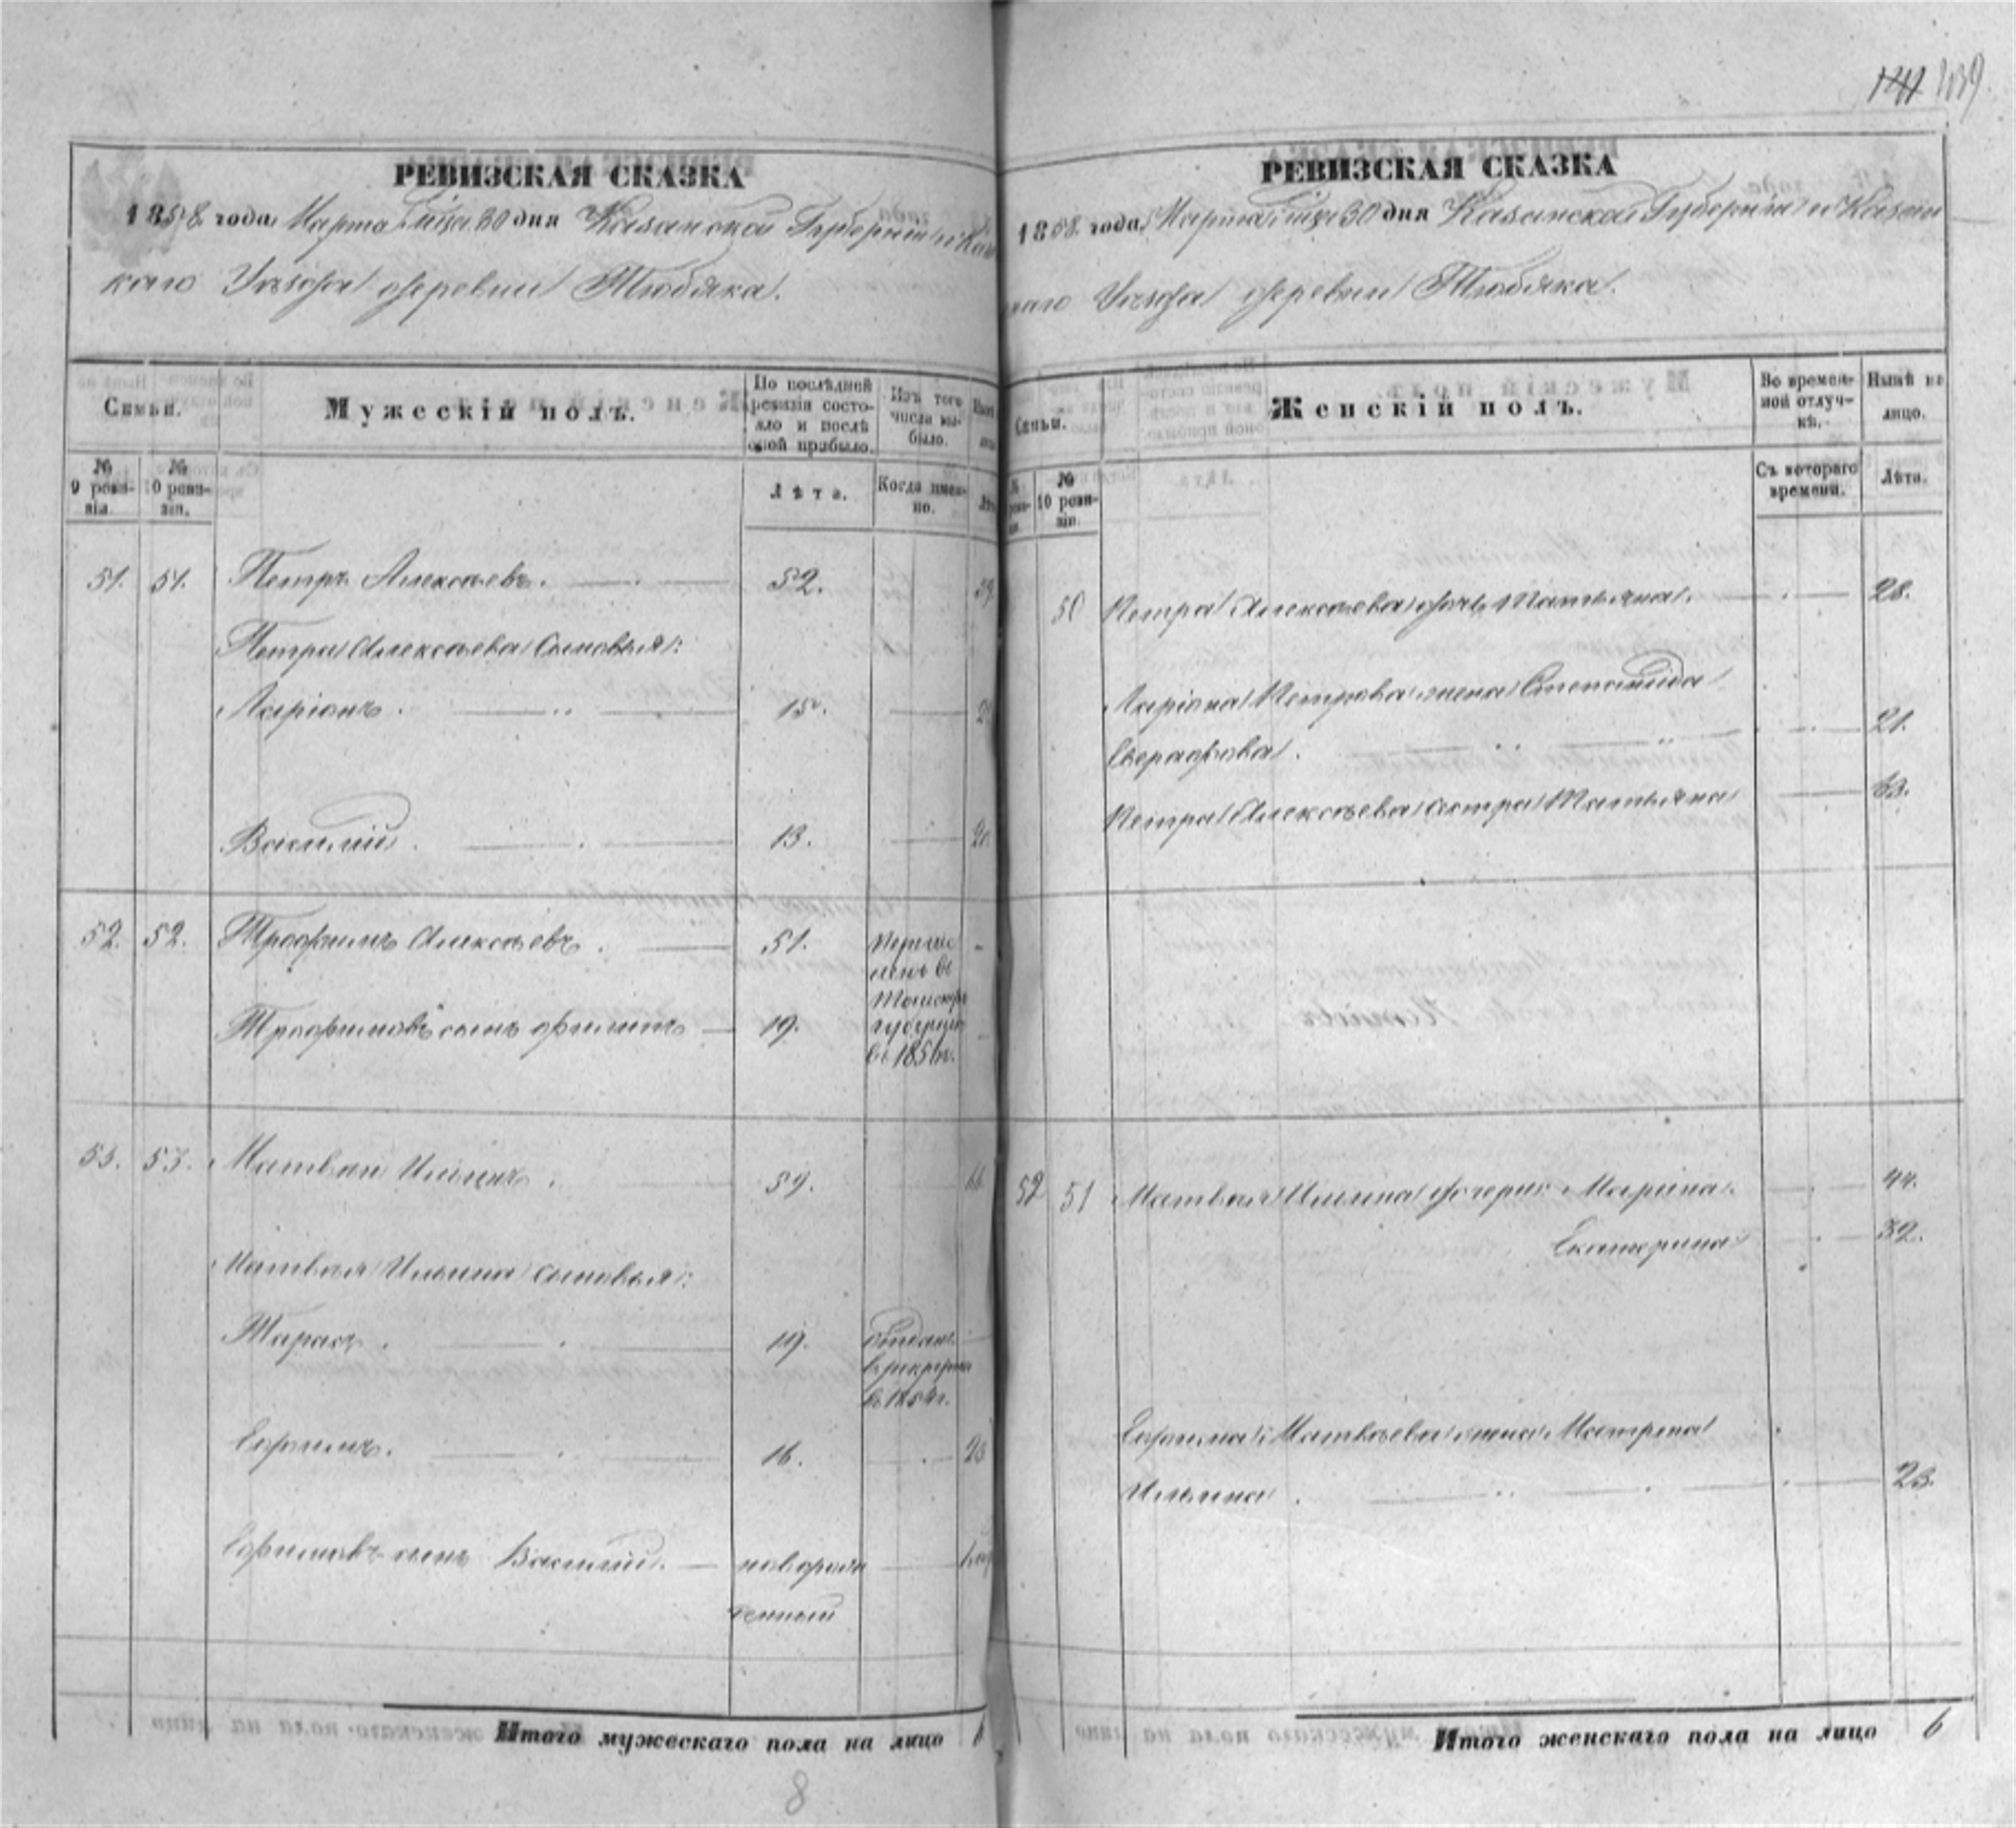 141 139
РЕВИЗСКАЯ СКАЗКА
1858 года Марта м-ца 30 дня Казанской Губернии и Казан
каго Уѣзда деревни Тюбяка.
Семьи.
№ 9 реви-
зіи.
№ 10 реви-
зіи.
Мужескій полъ.
По послѣдней
ревизіи состо-
яло и послѣ
оной прибыло.
Лѣта.
Изъ того
числа вы-
было.
Когда имен-
но.
51. 51. Петръ Алексѣевъ. 52.
Петра Алексѣева сыновья:
Ларіонъ. 15.
Василій. 13.
52. 52. Трофимъ Алексѣевъ. 51. Перечис
ленъ въ
Томскую
губернію
въ 1856 г.
Трофимовъ сынъ Филипъ 19.
53. 53. Матвей Ильинъ. 59.
Матвея Ильина сыновья:
Тарасъ. 19. Отданъ
въ рекруты
въ 1854 г.
Ефимъ. 16. 23
Ефимовъ сынъ Василій. новорож
денный
Итого мужескаго пола на лицо 6
8
РЕВИЗСКАЯ СКАЗКА
1858 года Марта м-ца 30 дня Казанской Губерніи и Казан
каго Уѣзда деревни Тюбяка.
Семьи.
№ 10 реви-
зіи.
Женскій полъ.
Во времен-
ной отлуч-
кѣ.
Съ котораго
времени.
Нынѣ на
лицо.
Лѣта.
50 Петра Алексѣева дочь Татьяна. 28.
Ларіона Петрова жена Степанида
21.
Петра Алексѣева сестра Татьяна 63.
52 51 Матвея Ильина дочери: Марина. 44.
Екатерина 32.
Ефима Матвѣева жена Матрена
Ильина. 23.
Итого женскаго пола на лицо 6